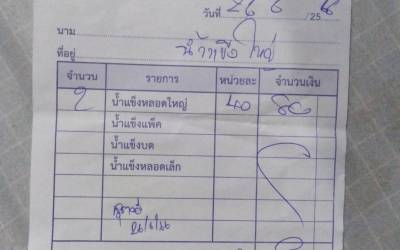 วันที่ 26 6 /25
นาม
ที่อยู่ น้ำแข็งใหญ่
จำนวน รายการ หน่วยละ จำนวนเงิน
2 น้ำแข็งหลอดใหญ่ 40 80
น้ำแข็งแพ็ค
น้ำแข็งบด
น้ำแข็งหลอดเล็ก
26/6/